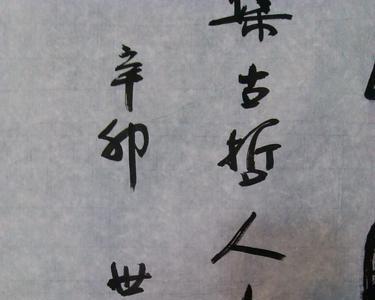 集古哲人
辛卯 世